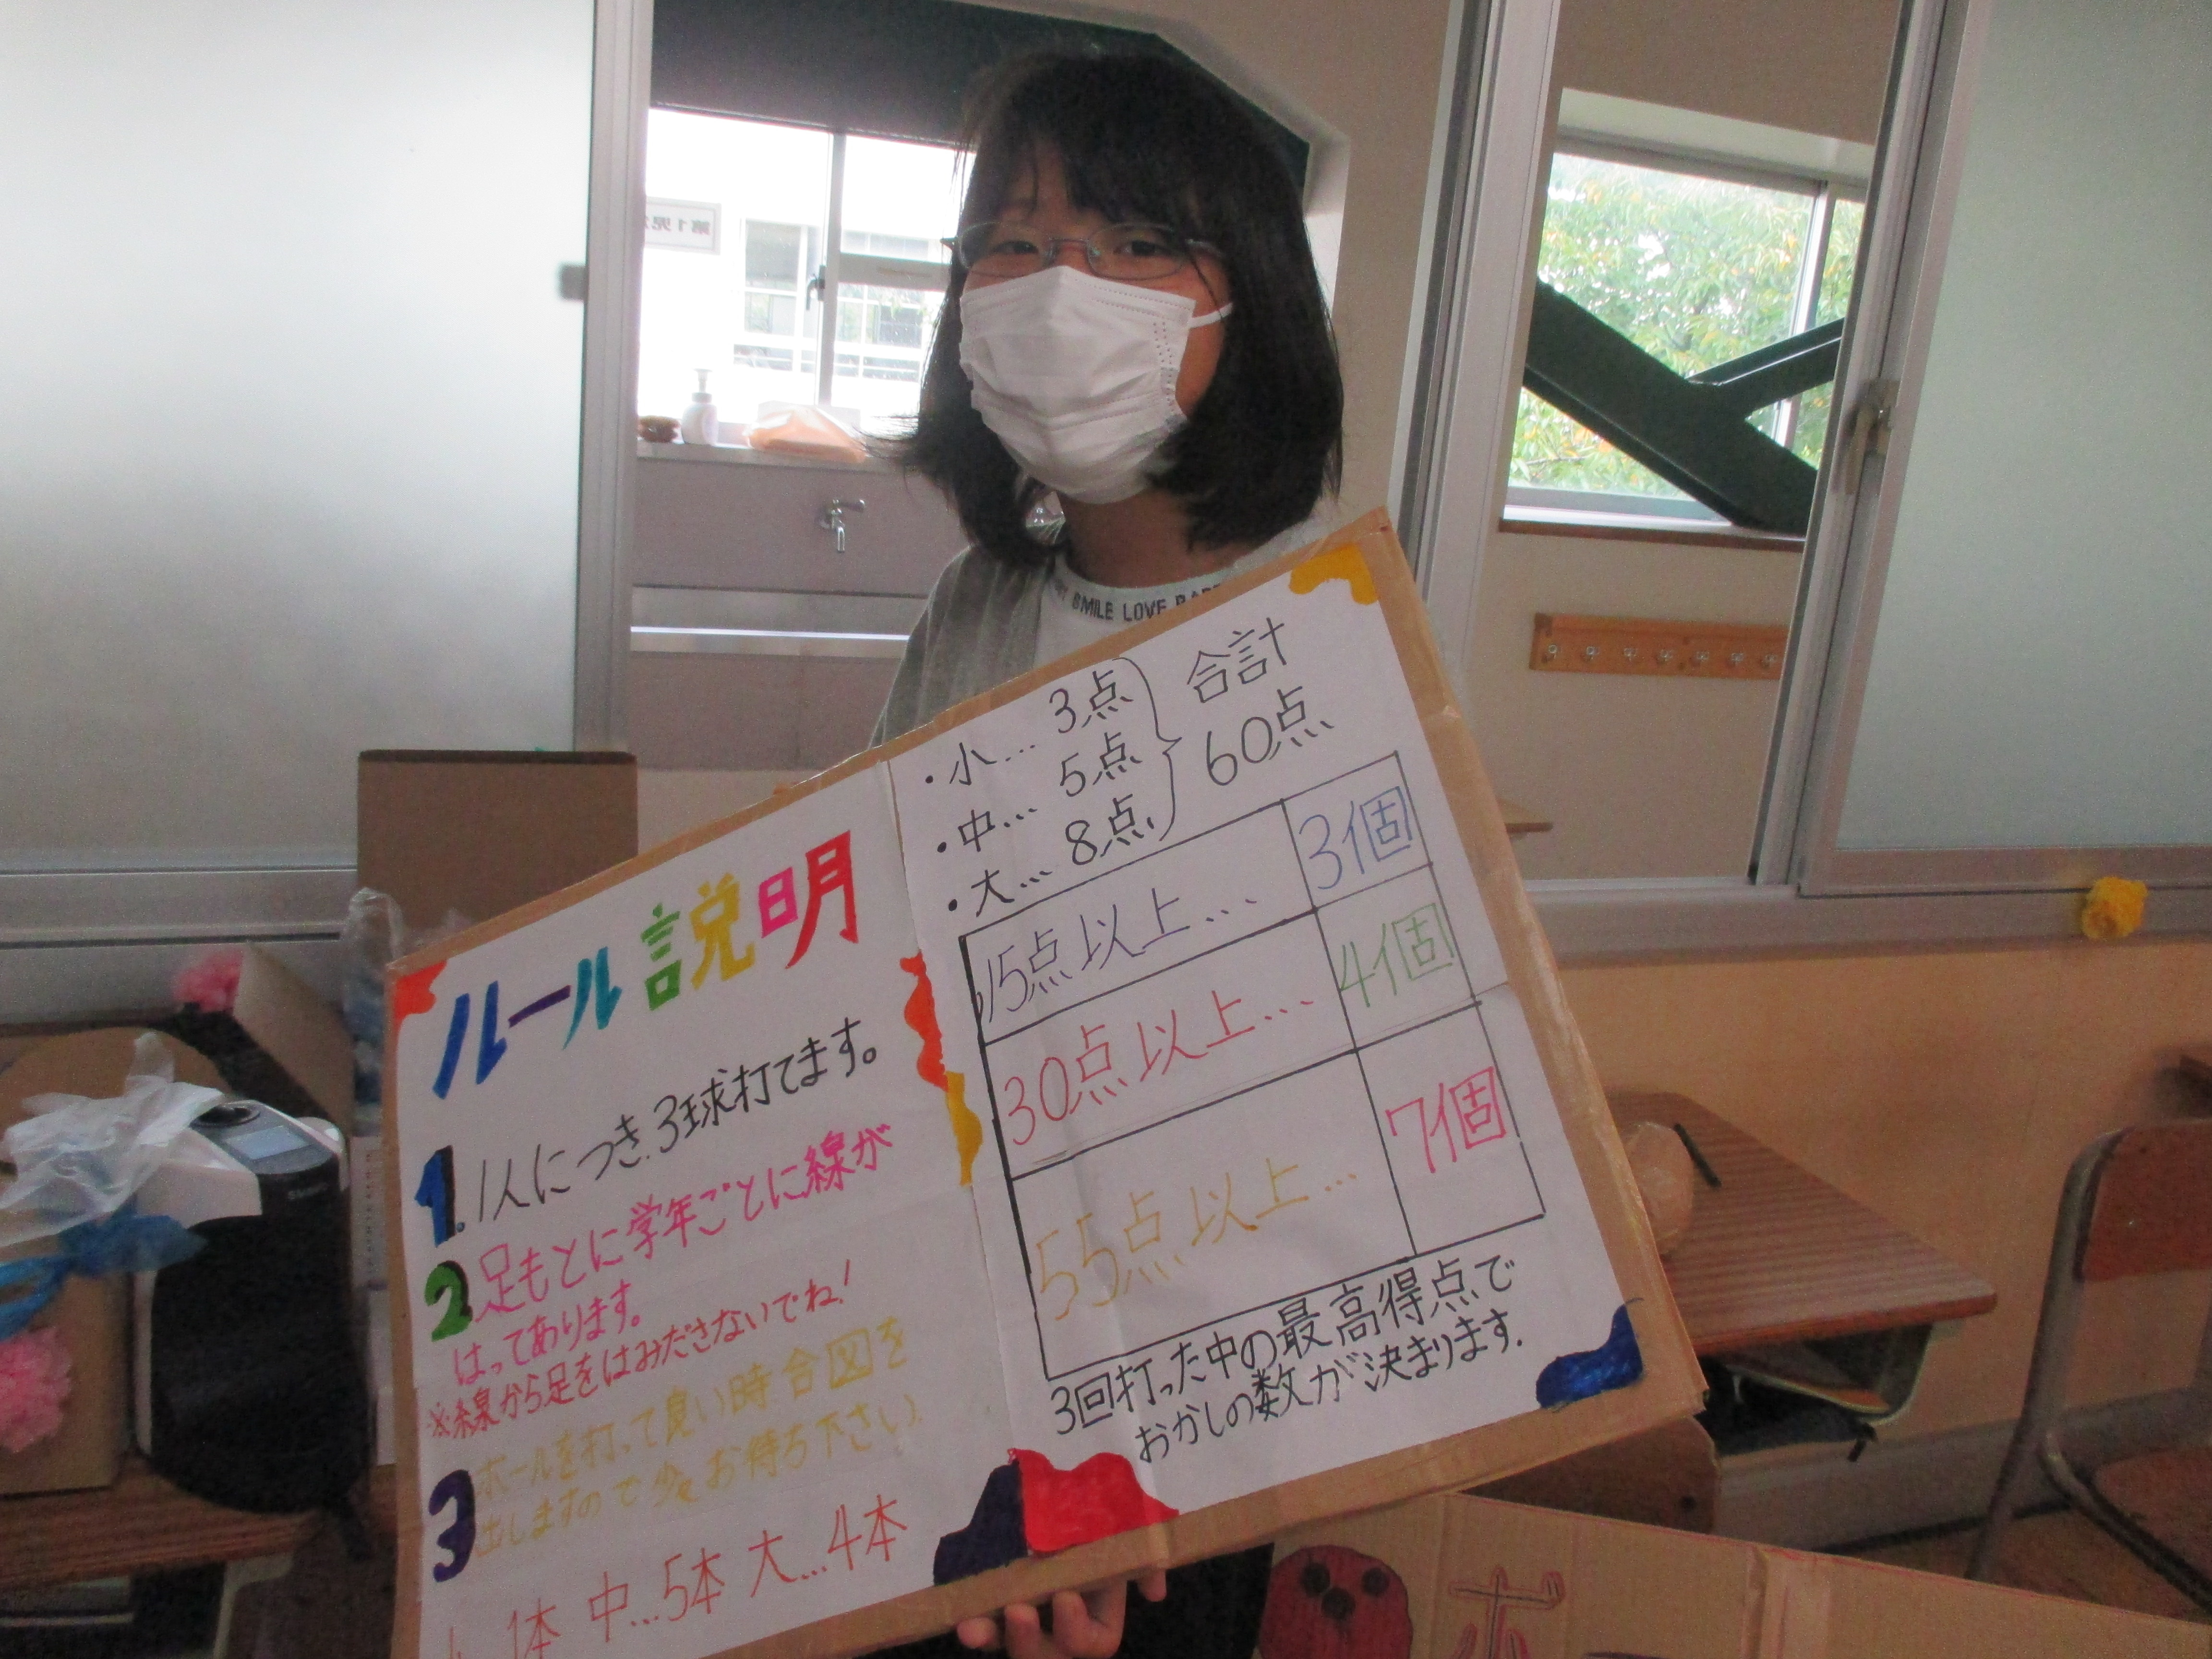 第1児
SMILE LOVE
ルール説明
1. 1人につき3球打てます。
2 足もとに学年ごとに線が
はってあります。
※線から足をはみださないでね!
3 ボールを打って良い時合図を
出しますので少々お待ち下さい.
1本 中…5本 大…4本
・小… 3点
・中… 5点
・大… 8点
合計
60点
15点以上… 3個
30点以上… 4個
55点以上… 7個
3回打った中の最高得点で
おかしの数が決まります.
ボ